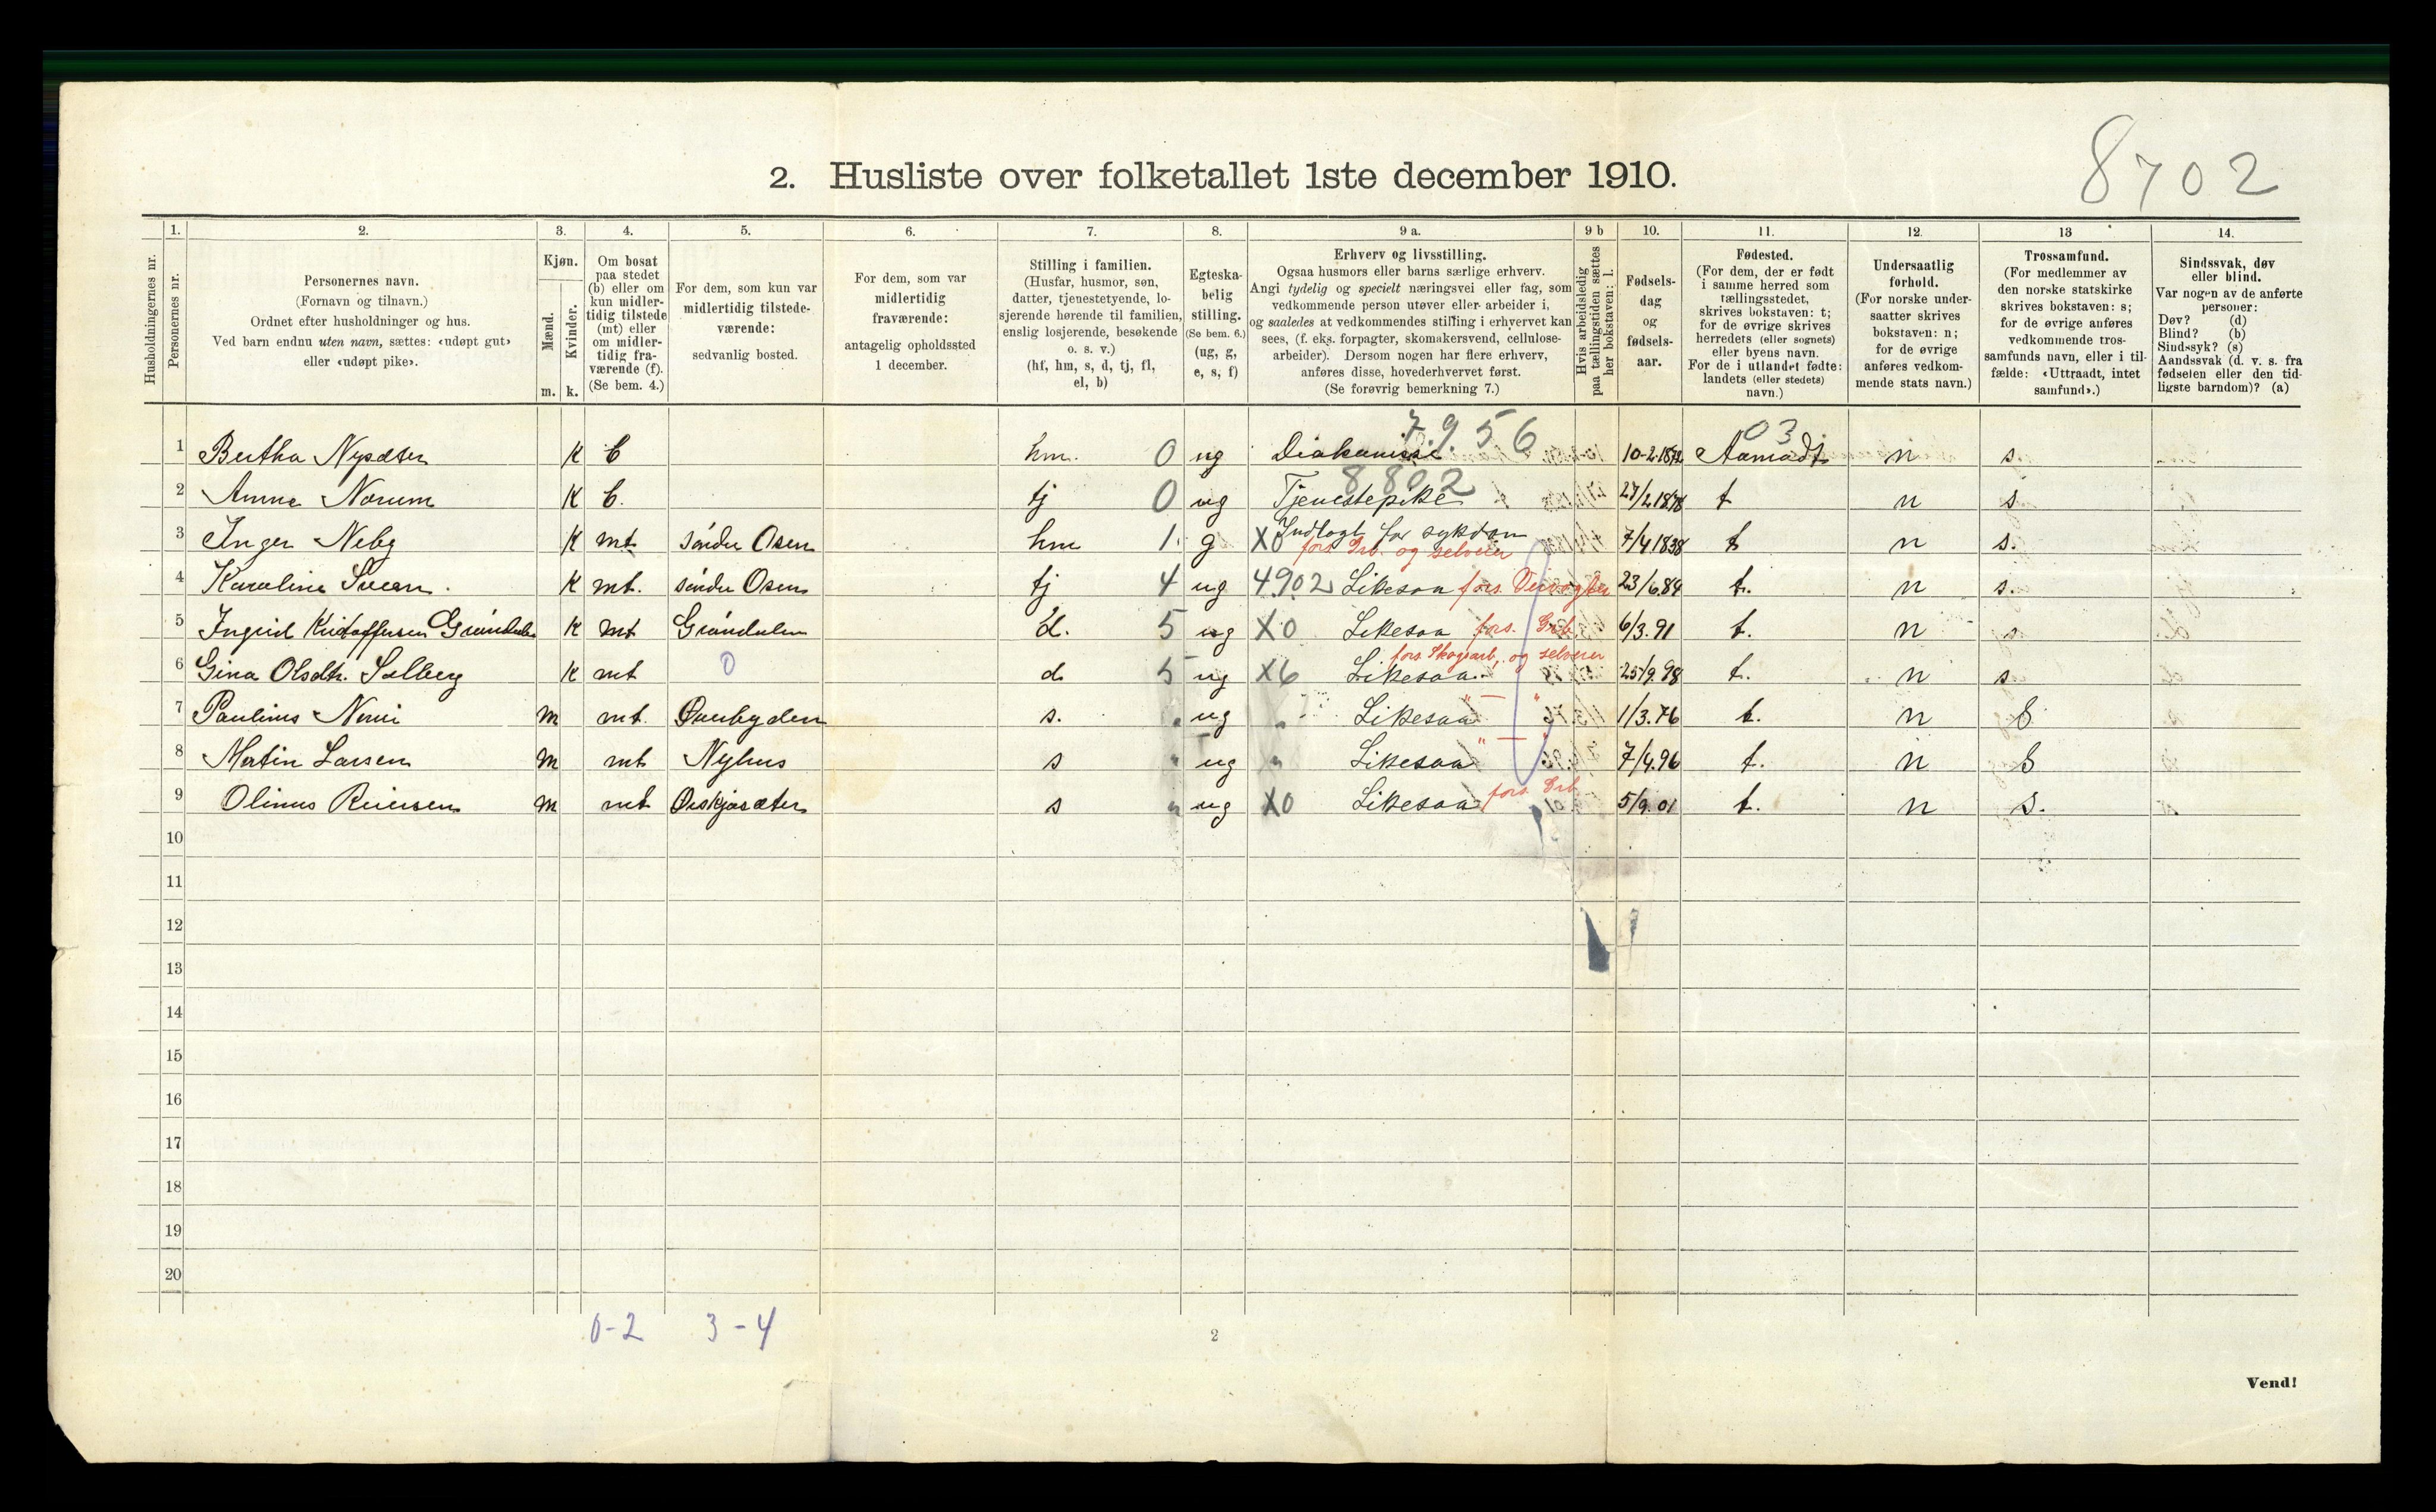 8702
2. Husliste over folketallet 1ste december 1910.
Husholdningernes nr.
1.
Personernes nr.
2.
Personernes navn.
(Fornavn og tilnavn.)
Ordnet efter husholdninger og hus.
Ved barn endnu uten navn, sættes: «udøpt gut»
eller «udøpt pike».
3.
Kjøn.
Mænd.
Kvinder.
m. k.
4.
Om bosat
paa stedet
(b) eller om
kun midler-
tidig tilstede
(mt) eller
om midler-
tidig fra-
værende (f).
(Se bem. 4.)
5.
For dem, som kun var
midlertidig tilstede-
værende:
sedvanlig bosted.
6.
For dem, som var
midlertidig
fraværende:
antagelig opholdssted
1 december.
7.
Stilling i familien.
(Husfar, husmor, søn,
datter, tjenestetyende, lo-
sjerende hørende til familien,
enslig losjerende, besøkende
o. s. v.)
(hf, hm, s, d, tj, fl,
el, b)
8.
Egteska-
belig
stilling.
(Se bem. 6.)
(ug, g,
e, s, f)
9 a.
Erhverv og livsstilling.
Ogsaa husmors eller barns særlige erhverv.
Angi tydelig og specielt næringsvei eller fag, som
vedkommende person utøver eller arbeider i,
og saaledes at vedkommendes stilling i erhvervet kan
sees, (f. eks. forpagter, skomakersvend, cellulose-
arbeider). Dersom nogen har flere erhverv,
anføres disse, hovederhvervet først.
(Se forøvrig bemerkning 7.)
9 b
Hvis arbeidsledig
paa tællingstiden sættes
her bokstaven: l.
10.
Fødsels-
dag
og
fødsels-
aar.
11.
Fødested.
(For dem, der er født
i samme herred som
tællingsstedet,
skrives bokstaven: t;
for de øvrige skrives
herredets (eller sognets)
eller byens navn.
For de i utlandet fødte:
landets (eller stedets)
navn.)
12.
Undersaatlig
forhold.
(For norske under-
saatter skrives
bokstaven: n;
for de øvrige
anføres vedkom-
mende stats navn.)
13
Trossamfund.
(For medlemmer av
den norske statskirke
skrives bokstaven: s;
for de øvrige anføres
vedkommende tros-
samfunds navn, eller i til-
fælde: «Uttraadt, intet
samfund».)
14.
Sindssvak, døv
eller blind.
Var nogen av de anførte
personer:
Døv? (d)
Blind? (b)
Sindssyk? (s)
Aandssvak (d. v. s. fra
fødselen eller den tid-
ligste barndom)? (a)
7956 03
1 Bertha Nysæter K b hm. 0 ug Diakonisse 10-2.1872 Aamodt n s.
8802
2 Anne Norum K b. tj 0 ug Tjenestepike 27/2.1878 t n s
3 Inger Neby K mt søndre Osen hm 1. g X0 Indlagt for sykdom 7/4.1838 t n s.
fors. Grb. og selveier
4 Karoline Sveen. K mt. søndre Osen tj 4 ug 4902 Likesaa fors. 23/6.84 t. n s.
5 Ingrid Kristoffersen Grøndalen K mt Grøndalen d. 5 ug X0 Likesaa fors. Grb. 6/3.91 t. n s
fors. Skogsarb. og selveier
6 Gina Olsdtr. Solberg K mt 0 d. 5 ug X6 Likesaa 25/9.98 t. n s
7 Paulinus Nemi m mt. Øverbyden s. " ug " Likesaa " — " 1/3.76 t. n S
8 Martin Larsen m mt Nyhus s " ug " Likesaa " — " 7/4.96 t. n S
9 Olinus Reiersen m mt Ørskjøsæter s " ug X0 Likesaa fors. Grb. 5/9.01 t. n s.
10
11
12
13
14
15
16
17
18
19
20
0-2 3-4
2
Vend!